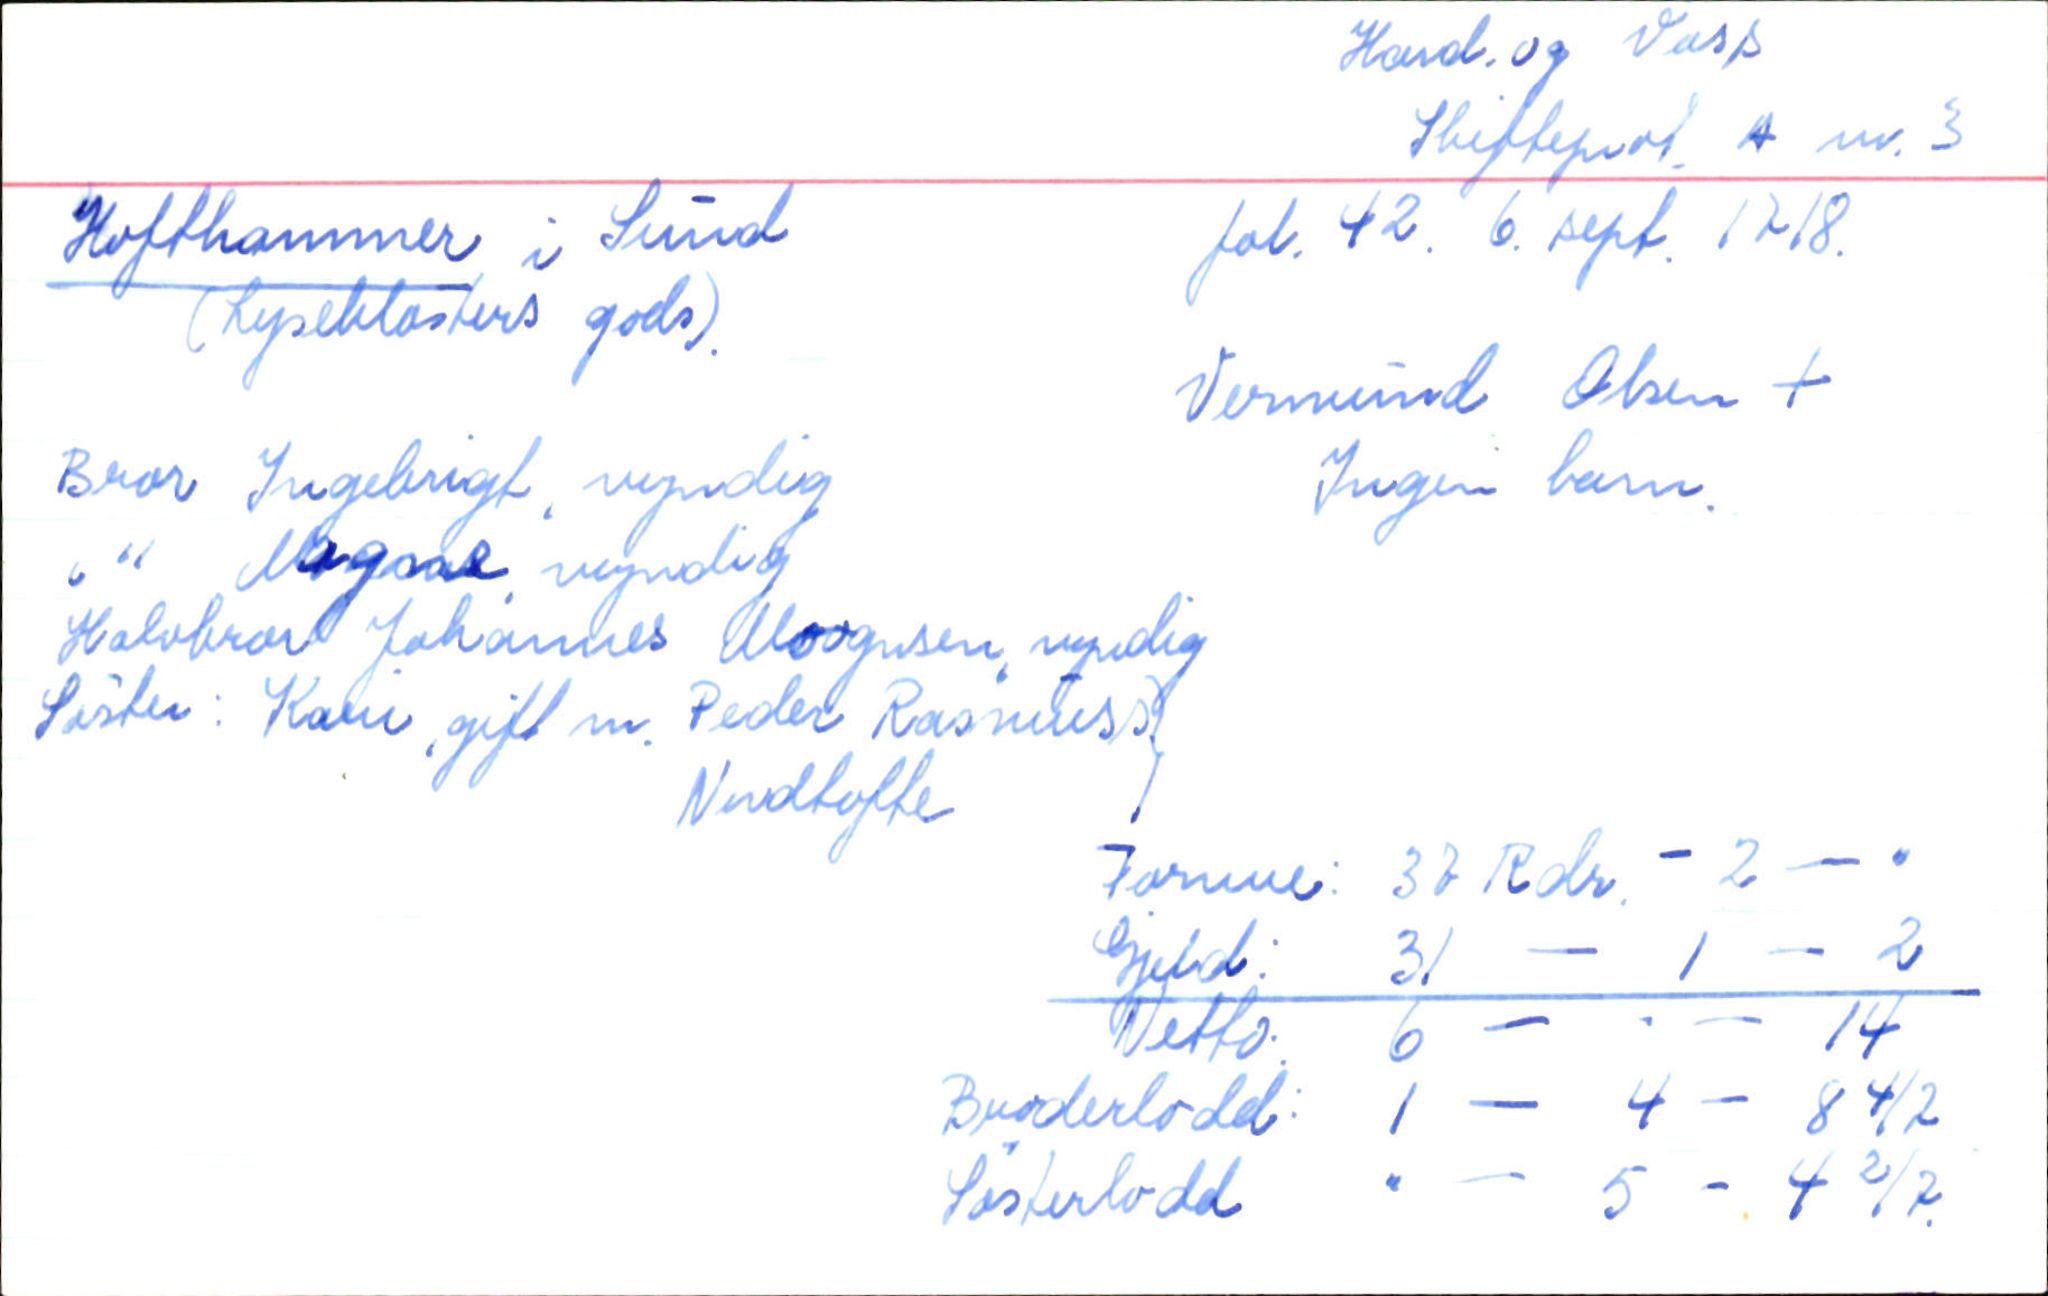 Hard. og Voss
Skifteprot. A nr. 3
Hofthammer i Sund
fol. 42. 6. sept. 1718.
(Lyseklosters gods).
Vermund Olsen +
Ingen barn.
Bror Ingebrigt, myndig
" " Mogane, myndig
Halvbror Johannes Mognsen, myndig
Søster: Kari, gift m. Peder Rasmuss.
Nordtofte
Formue: 37 Rdr. - 2 - "
Gjeld: 31 - 1 - 2
Netto. 6 - " - 14
Broderlodd: 1 - 4 - 8 4/7
Søsterlodd " - 5 - 4 2/7.